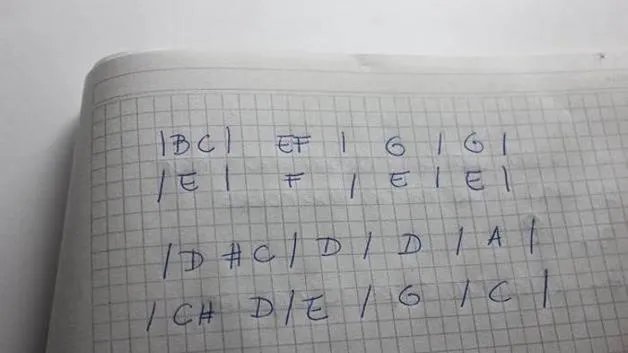 |BC| EF | G | G |
|E| F | E | E |
|D #C| D | D | A |
| C# D | E | G | C |